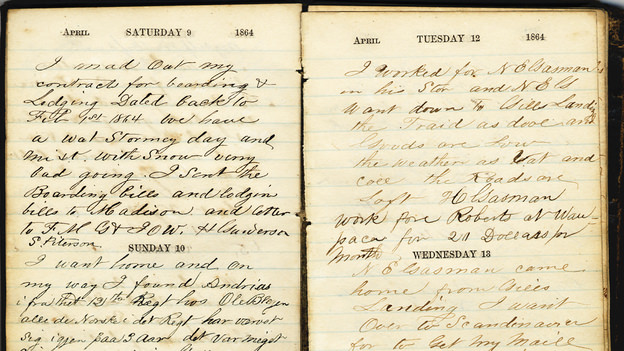 April SATURDAY 9 1864
I mad Out my
contract for boarding &
Lodging Dated Back to
Feb 1st 1864 we have
a wat Stormey day and
mist. with Snow very
bad going. I sent the
Boarding bills and lodgin
bills to Madison and letter
to F. M. G & J O W. & H
S. Peterson
SUNDAY 10
I want home and on
my way I found Andrias
ifra thet Regt hos
alle de Norske i det Regt har varvet
Sig igjen paa 3 aar det var meget
April TUESDAY 12 1864
I Worked for N E Gasman
in his Stor and N E G
Want down to Gills Landing
the Traid as dooe and
Goods are how
the weather as Wat and
core the Roads are
Soft H Gasman
work fore Roberts at Wau-
paca for 20 Dollars per
month
WEDNESDAY 13
N E Gasman came
home from Gills
Landing I want
Over to Scandinavier
for to Get my Maill